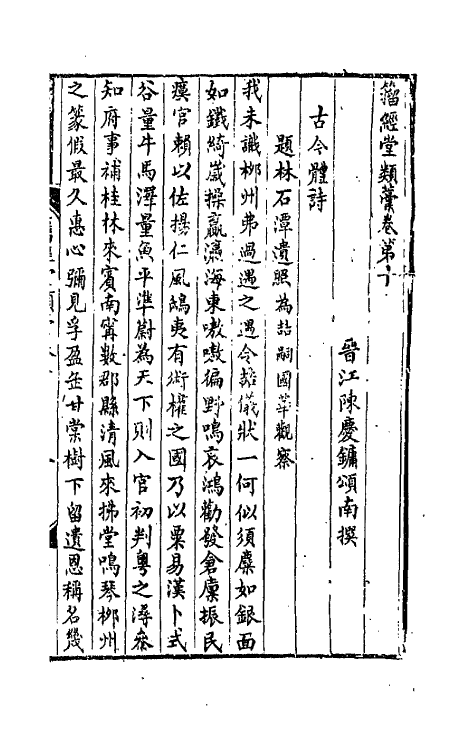 籀經堂類藁卷第十
晉江陳慶鏞頌南撰
古今體詩
題林石潭遺照為喆嗣國華觀察
我未識柳州弗過遇之遇今熟儀狀一何似須麋如銀面
如鐵綺歲操贏瀛海東嗷嗷徧野鳴哀鴻勸發倉廩振民
瘼官賴以佐揚仁風鴟夷有術權之國乃以粟易漢卜式
谷量牛馬澤量魚平準蔚為天下則入官初判粵之潯叅
知府事補桂林來賓南甯數郡縣清風來拂堂鳴琴柳州
之篆假最久惠心彌見孚盈缶甘棠樹下留遺恩稱名幾